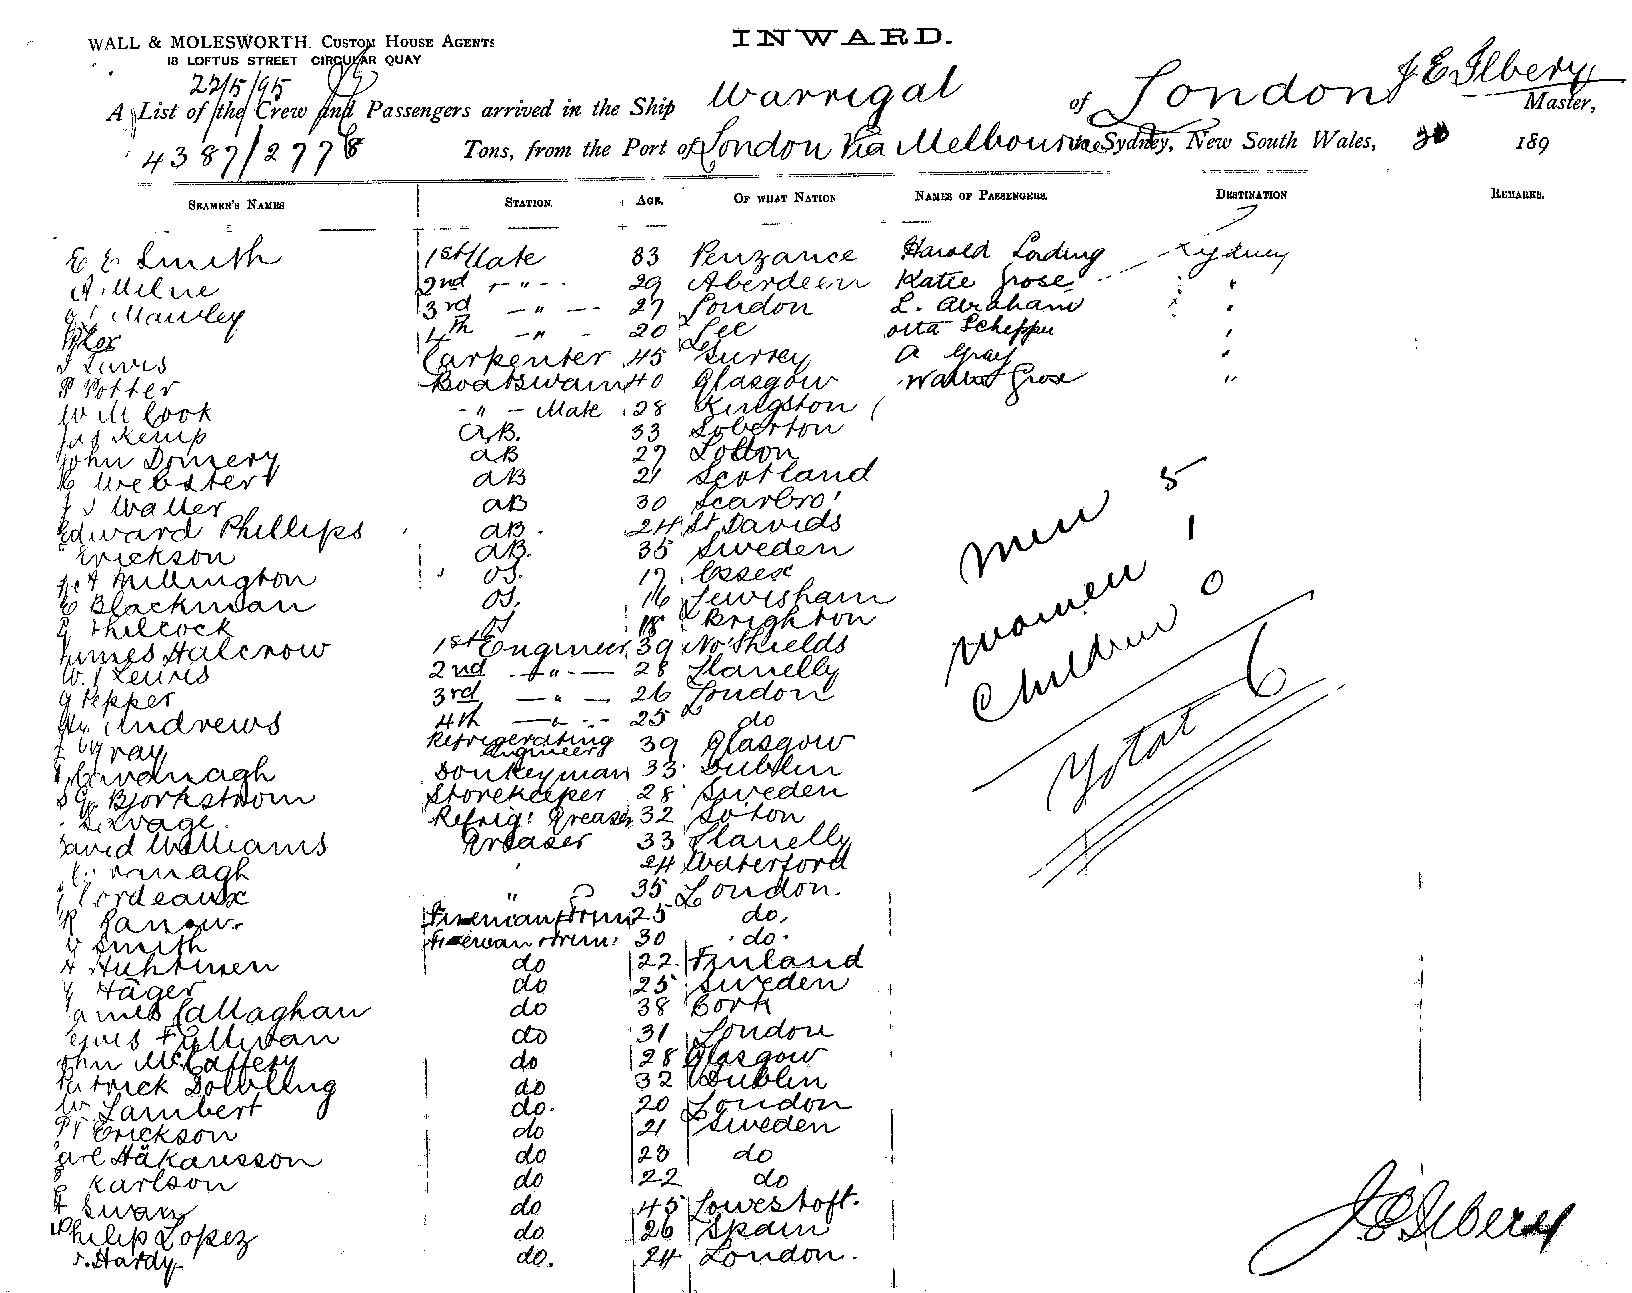 INWARD.
WALL & MOLESWORTH. CUSTOM HOUSE AGENTS
18 LOFTUS STREET CIRCULAR QUAY
22/5/95
A List of the Crew and Passengers arrived in the Ship Warrigal of London J E Ilbery Master,
4387/2778 Tons, from the Port of London Via Melbourne to Sydney, New South Wales, 189
SEAMEN'S NAMES STATION. AGE. OF WHAT NATION NAMES OF PASSENGERS. DESTINATION REMARKS.
E E Smith 1st Mate 33 Penzance Harold Loding Sydney
A. Milne 2nd - " - 29 Aberdeen Katie Grose "
Mauley 3rd - " - 27 London L. Abraham "
4th - " - 20 Lee Scheppu "
45 Carpenter Surrey A Gray "
P Potter Boatswain 40 Glasgow Walter Grose "
W M Cook - " - Mate 28 Kingston
Jas Kemp A.B. 33 Soberton
John Domery AB 27 Lotton
Webster AB 21 Scotland
Waller AB 30 Scarbro'
Edward Phillips AB. 24 St Davids
Erickson AB. 35 Sweden
Millington OS. 17 Essex
Blackman OS. 16 Lewisham
Philcock OS 18 Brighton
James Halcrow 1st Engineer 39 No Shields
W. J Lewis 2nd - " - 28 Llanelly
G Pepper 3rd - " - 26 London
Andrews 4th - " - 25 do
Gray Refrigerating Engineers 39 Glasgow
Cavanagh Donkeyman 33 Dublin
Bjorkstrom Storekeeper 28 Sweden
Savage Refrig: Greaser 32 So'ton
David Williams Greaser 33 Llanelly
24 Waterford
Bordeaux " 35 London.
R Fireman & Trim 25 do.
Smith Fireman & Trim: 30 do.
Huhtinen do 22 Finland
Häger do 25 Sweden
James Callaghan do 38 Cork
do 31 London
John McCaffery do 28 Glasgow
Patrick Dowling do 32 Dublin
W Lambert do. 20 London
Erickson do 21 Sweden
Carl Håkansson do 23 do
Karlson do 22 do
Swan do 45 Lowestoft.
Philip Lopez do 26 Spain
Hardy do. 24 London.
Men 5
Women 1
Children 0
Total 6
J E Ilbery